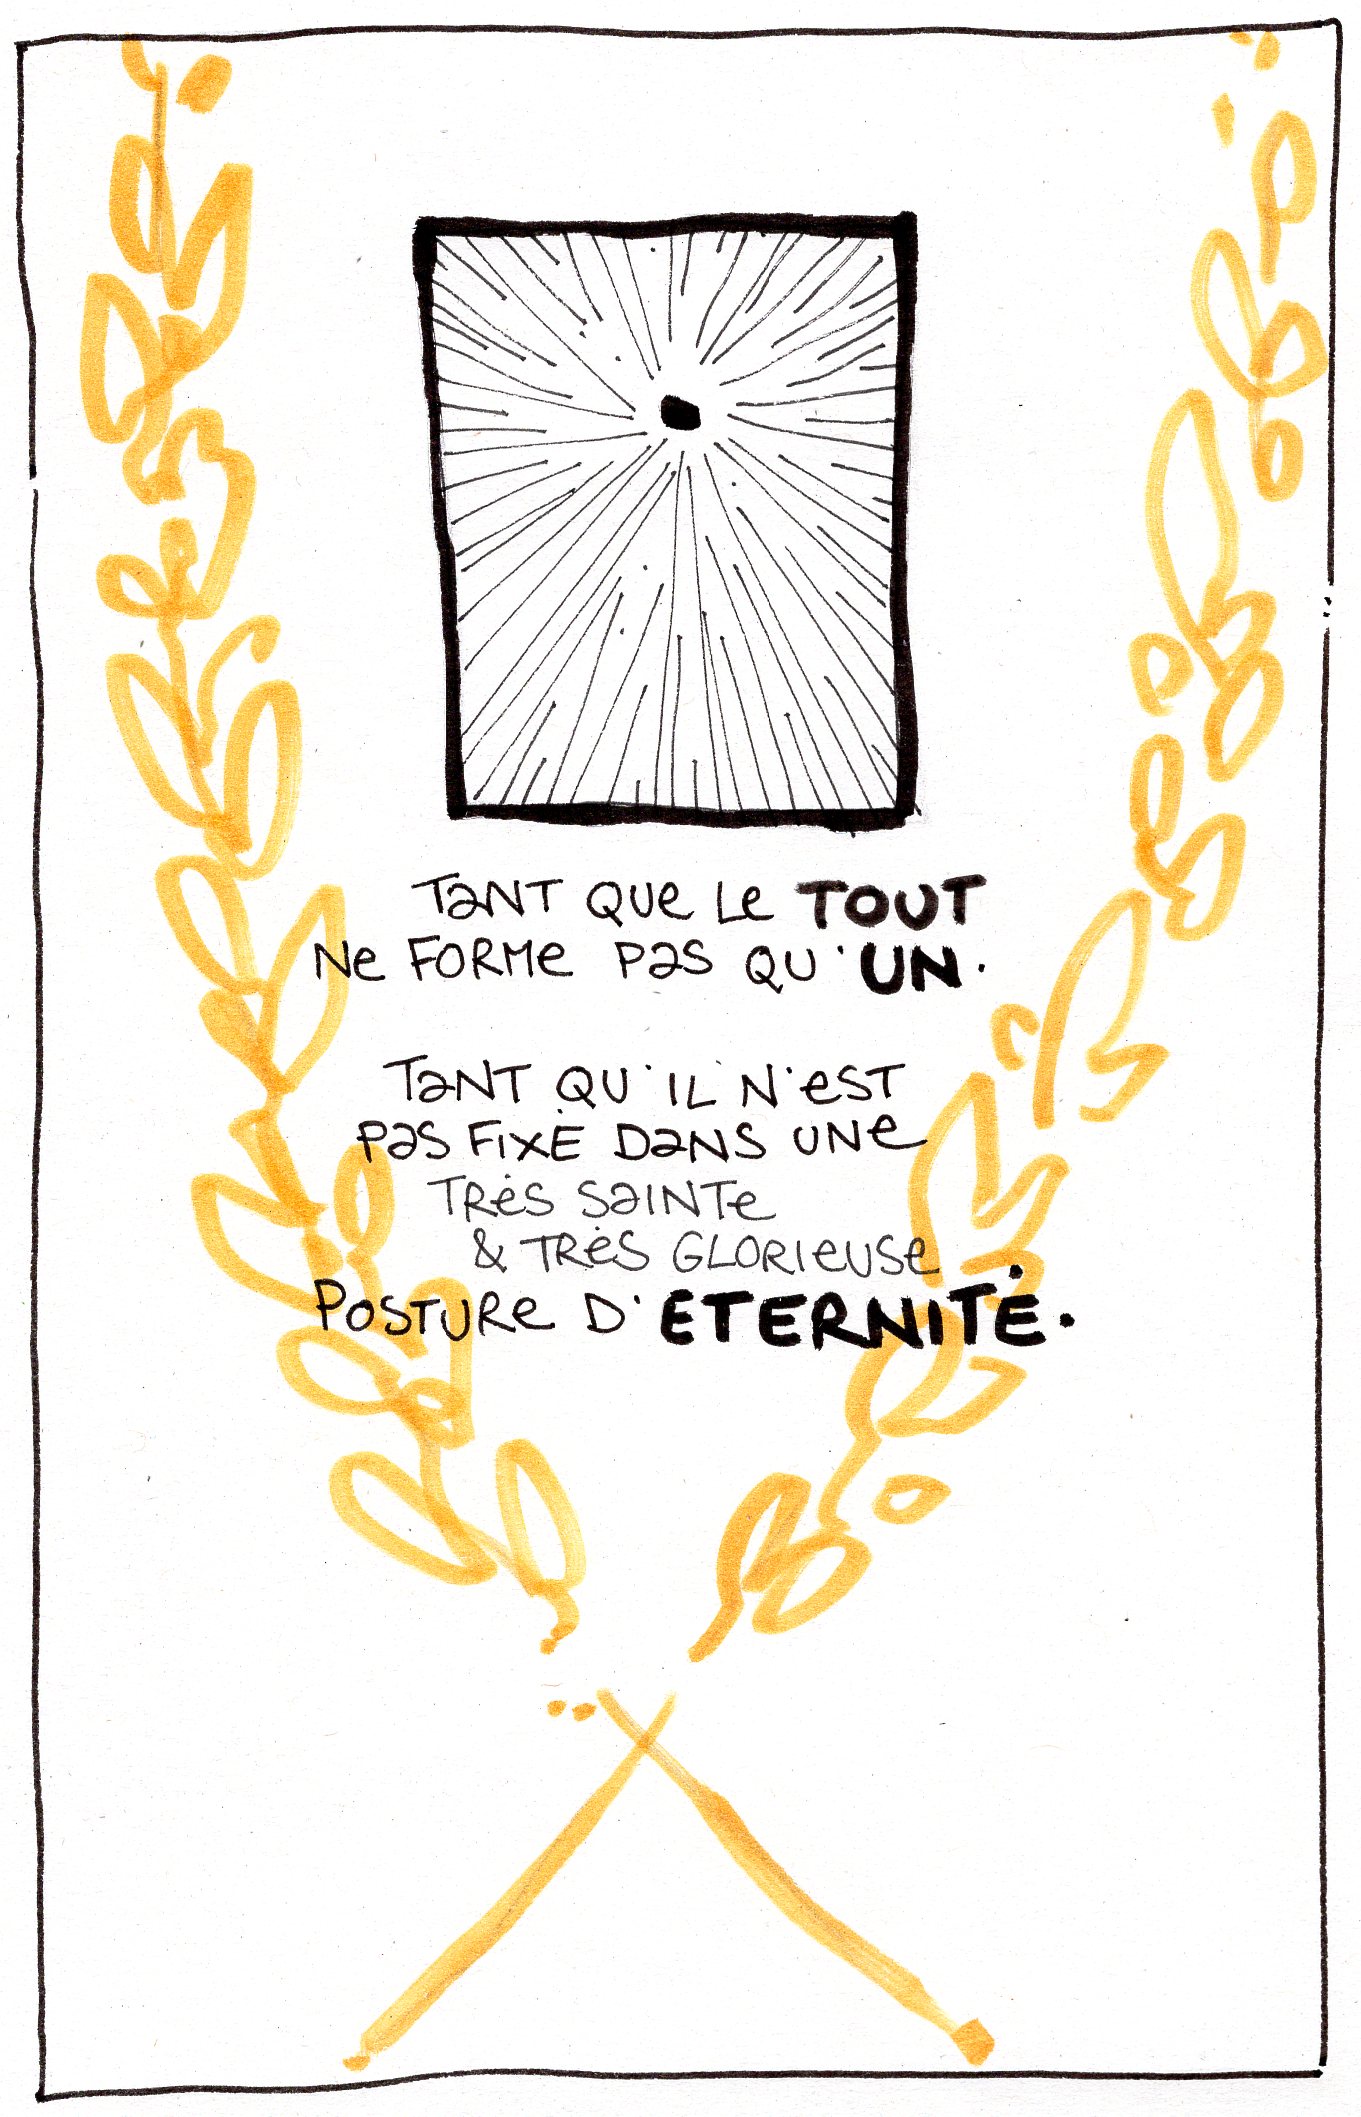 TANT QUE LE TOUT
NE FORME PAS QU'UN.
TANT QU'IL N'EST
PAS FIXÉ DANS UNE
TRÈS SAINTE
& TRÈS GLORIEUSE
POSTURE D'ETERNITÉ.